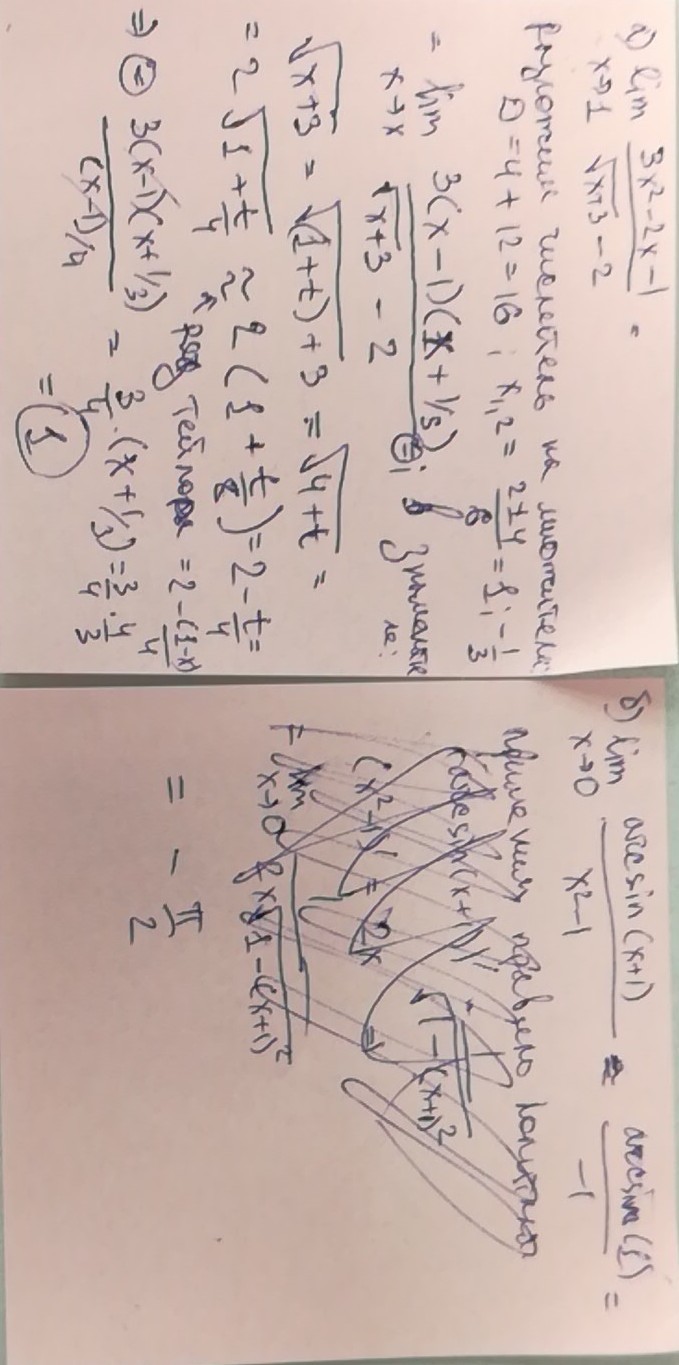 а) lim 3x²-2x-1 / √x+3 - 2 =
x→1
разложим числитель на множители:
D = 4 + 12 = 16 ; x₁,₂ = 2±4 / 6 = 1; -1/3
= lim 3(x-1)(x+1/3) / √x+3 - 2 ⊜; в знаменателе:
x→x
√x+3 = √(1+t)+3 = √4+t =
= 2 √1+t/4 ≈ 2(1 + t/8) = 2 - t/4 =
ряд Тейлора = 2 - (1-x)/4
⇒ ⊜ 3(x-1)(x+1/3) / (x-1)/4 = 3/4 · (x+1/3) = 3/4 · 4/3
= 1
б) lim arcsin(x+1) / x²-1 = arcsin(1) / -1 =
x→0
применим правило Лопиталя
(arcsin(x+1))' √1-(x+1)²
(x²-1)' = 2x ⇒
= lim 1 / 2x√1-(x+1)²
x→0
= - π/2